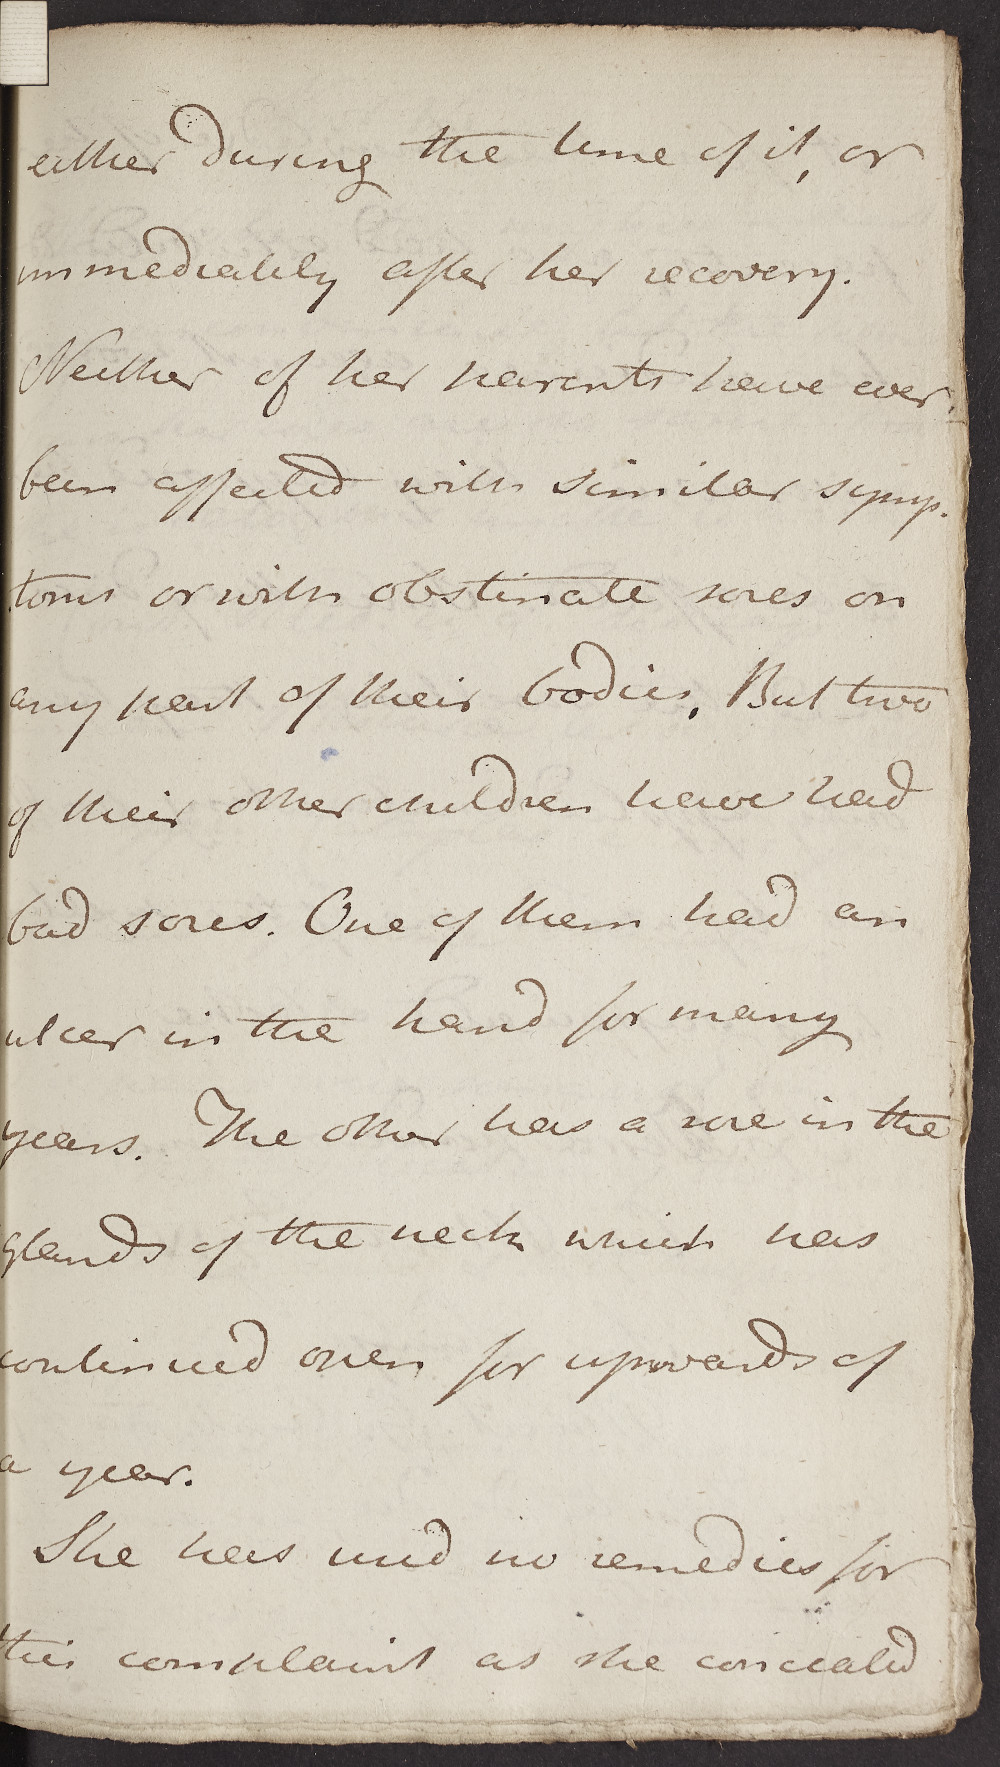 either during the time of it, or
immediately after her recovery.
Neither of her parents have ever
been affected with similar symp-
toms or with obstinate sores on
any part of their bodies, But two
of their other children have had
bad sores. One of them had an
ulcer in the hand for many
years. The other has a sore in the
glands of the neck which has
continued open for upwards of
a year.
She has used no remedies for
this complaint as she concealed